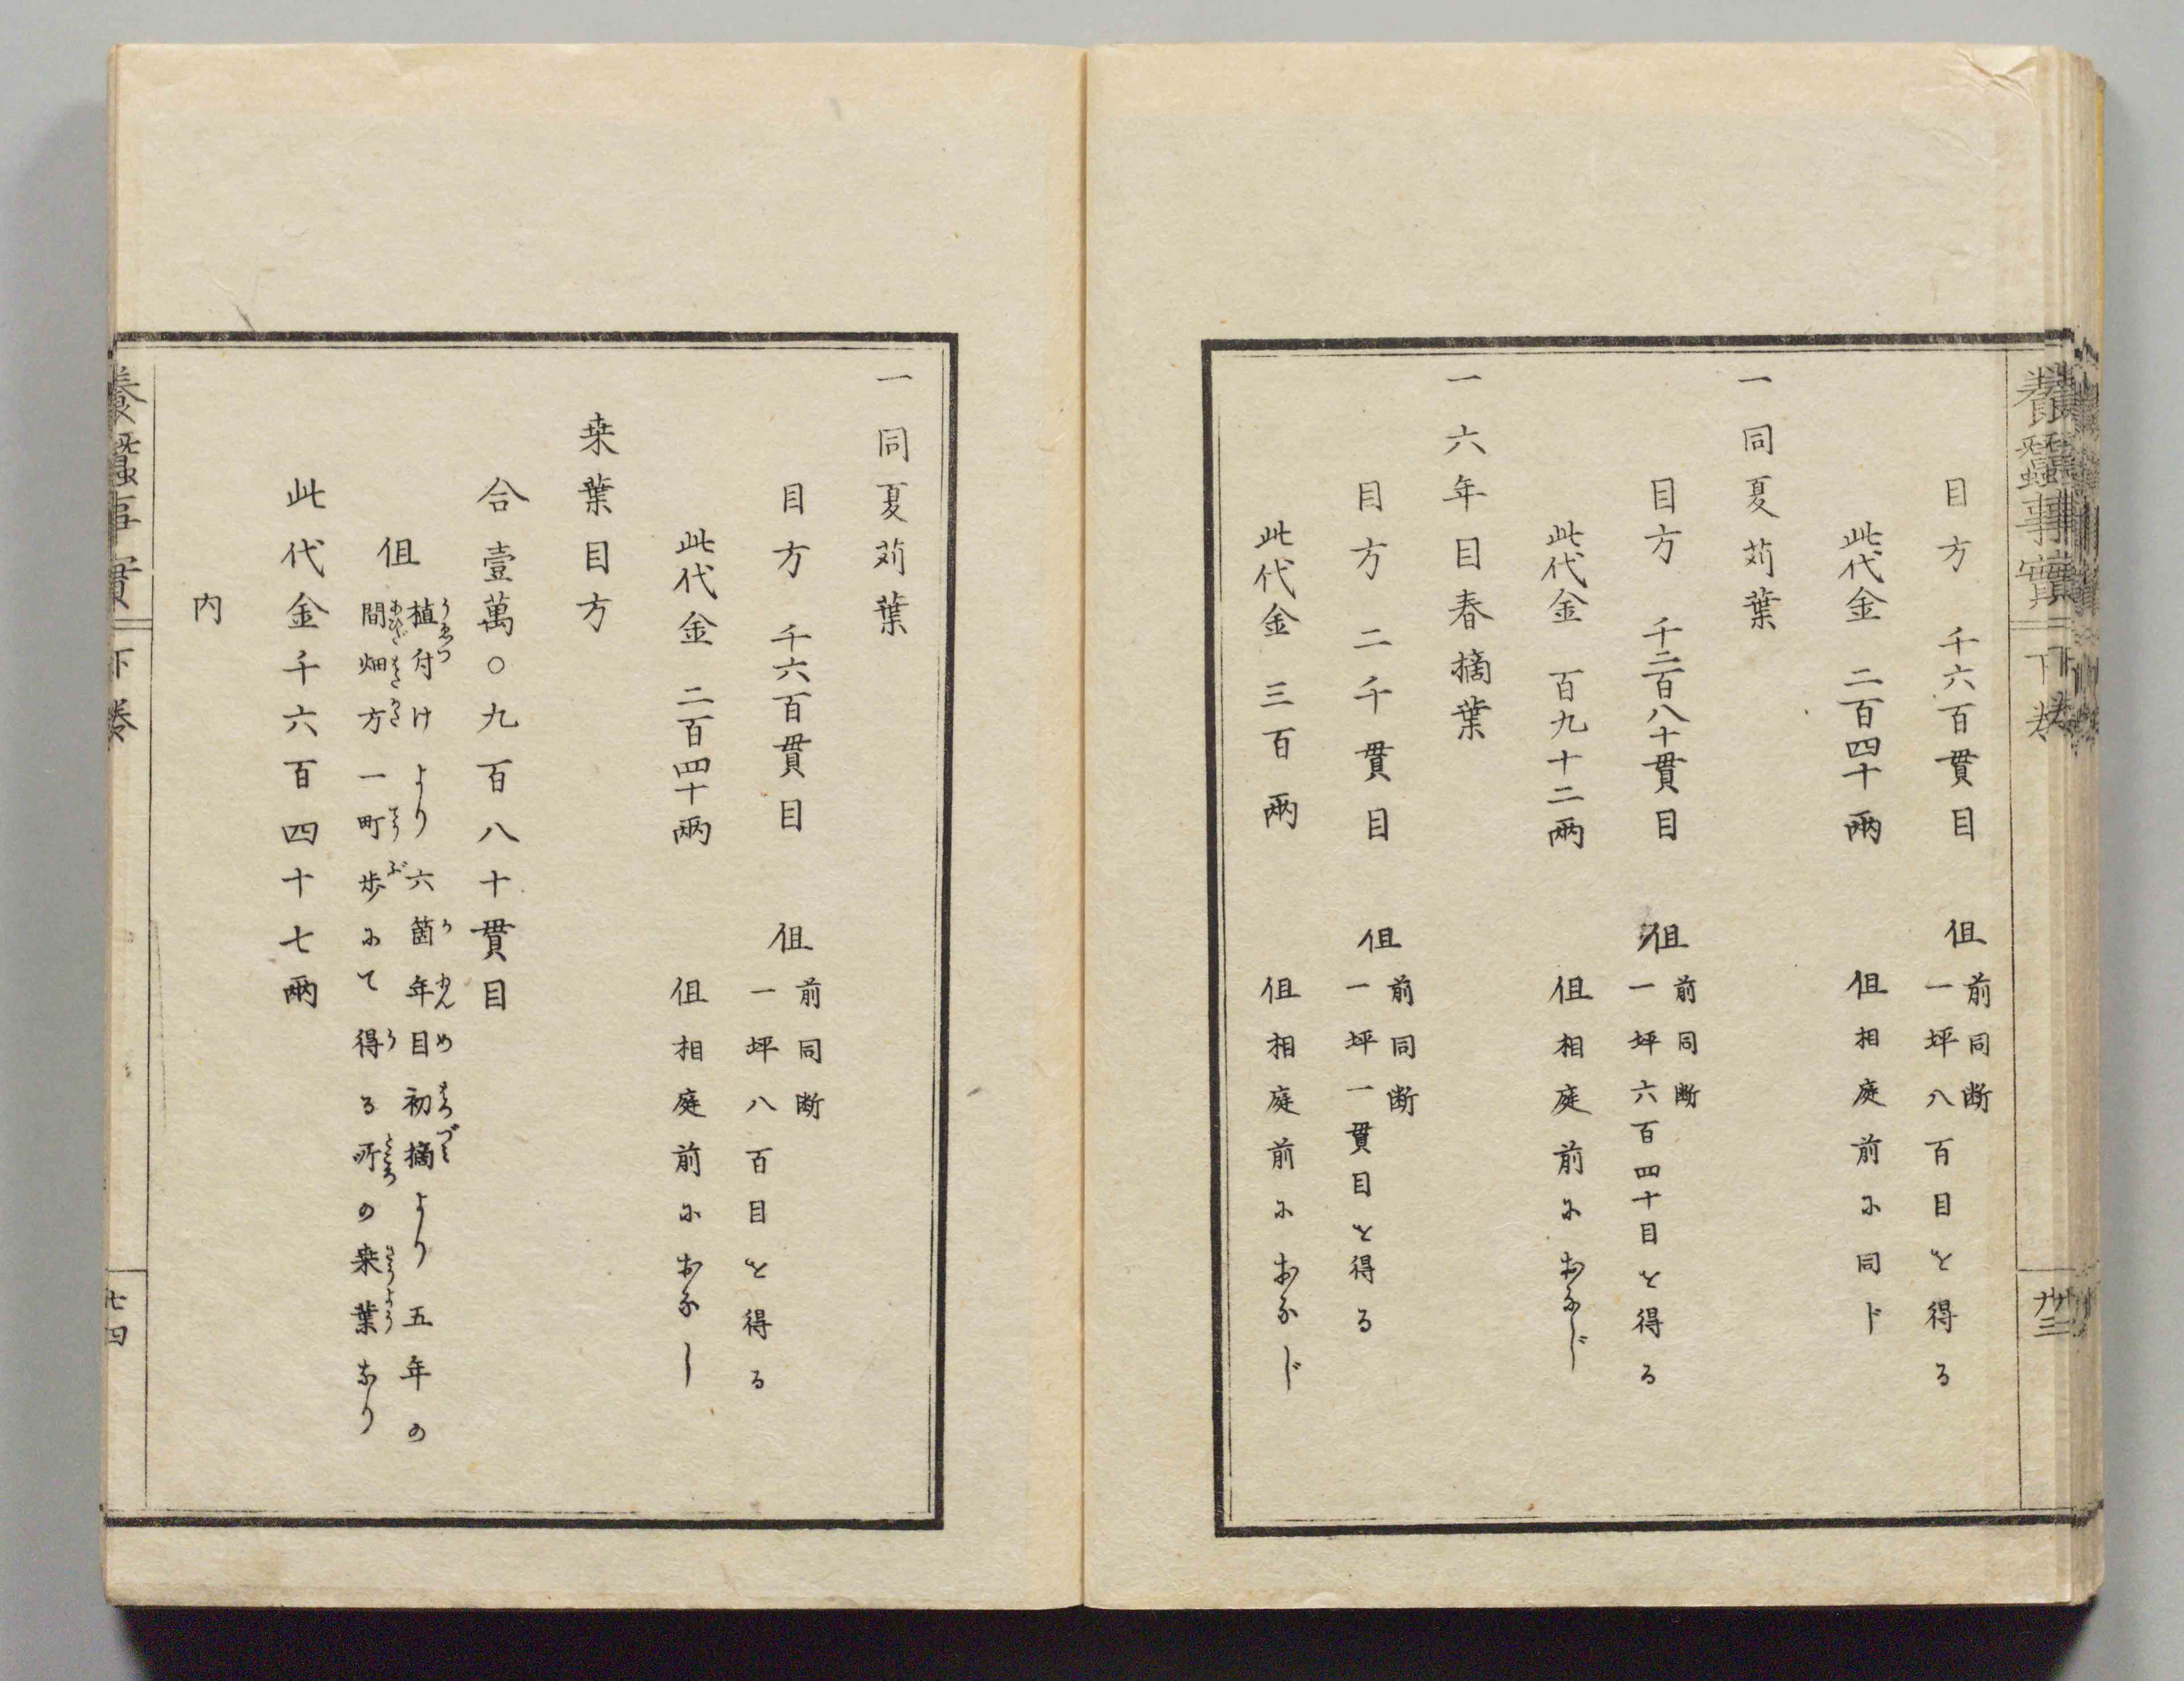 養蠶事實 下巻 廿三
目方 千六百貫目 但 前同断
一坪八百目を得る
此代金 二百四十兩 但相庭前に同ド
一同夏苅葉
目方 千二百八十貫目 但 前同断
一坪六百四十目を得る
此代金 百九十二兩 但相庭前におなじ
一六年目春摘葉
目方 二千貫目 但 前同断
一坪一貫目を得る
此代金 三百兩 但相庭前におなじ
一同夏苅葉
目方 千六百貫目 但 前同断
一坪八百目を得る
此代金 二百四十兩 但相庭前におなし
桒葉目方
合壹萬〇九百八十貫目
但 植付けより六箇年目初摘より五年の
間畑方一町歩にて得る所の桒葉なり
此代金千六百四十七兩
内
養蠶事實 下巻 廿四